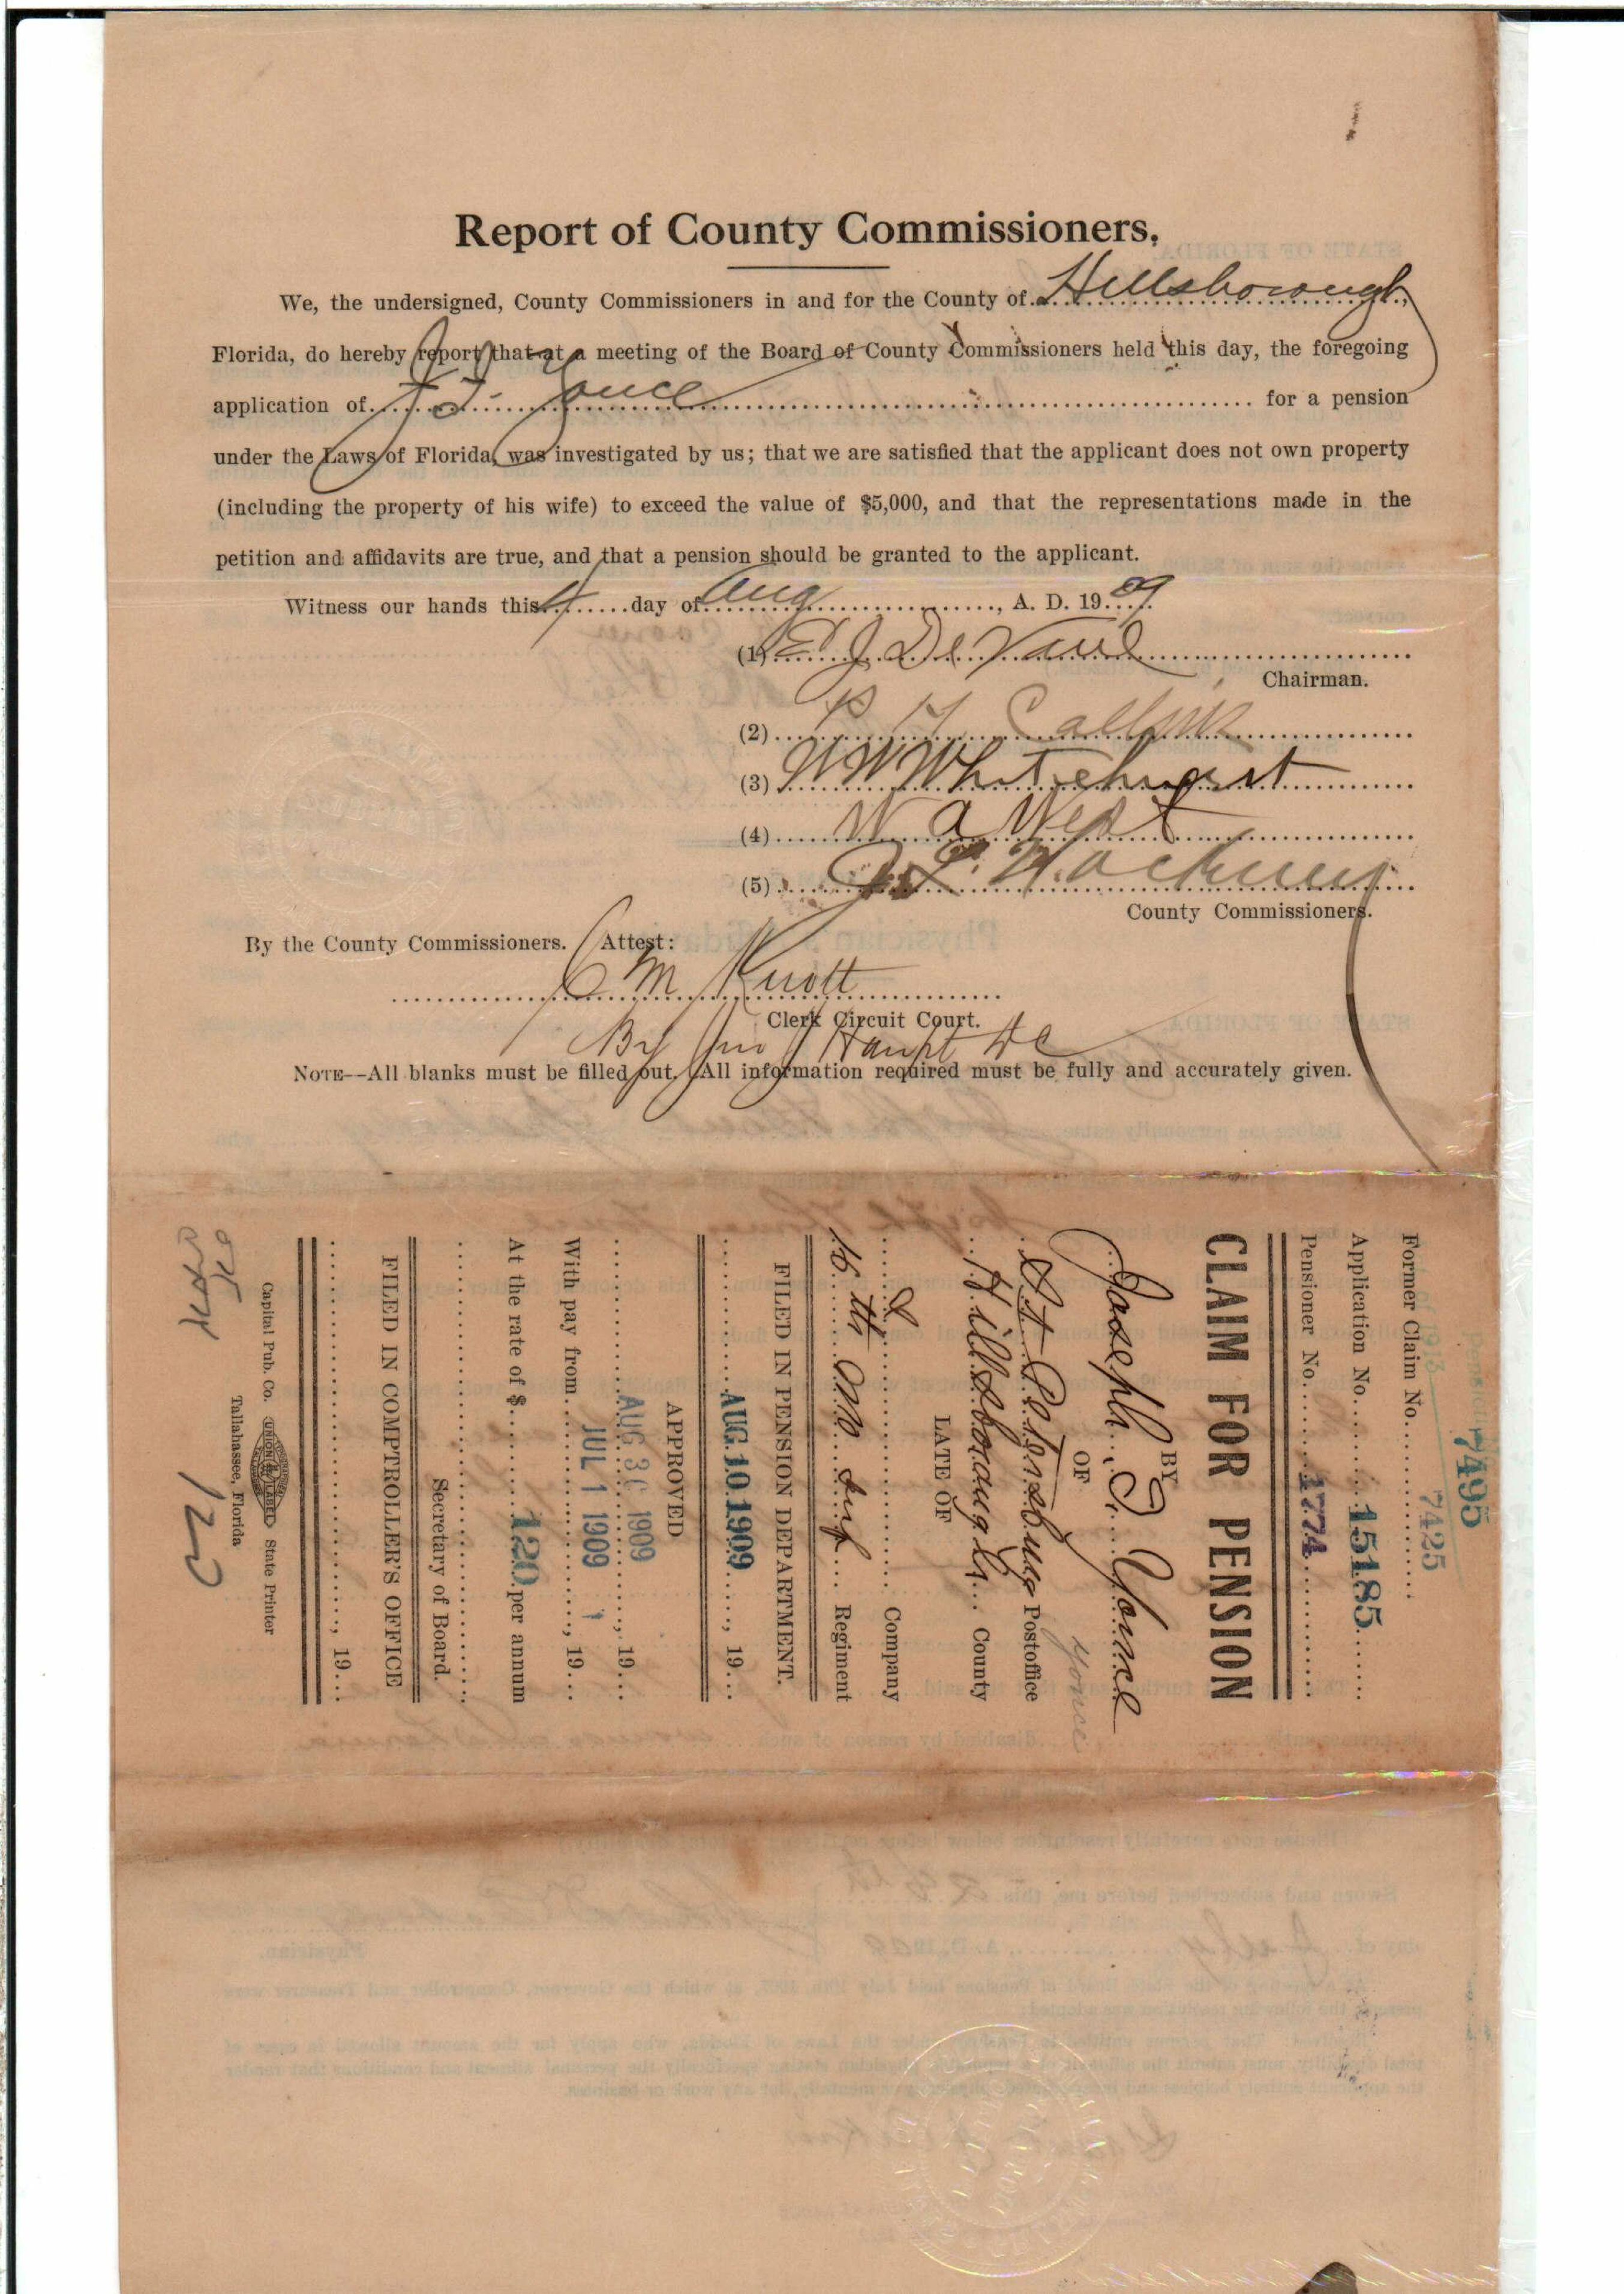 Report of County Commissioners.
We, the undersigned, County Commissioners in and for the County of Hillsborough,
Florida, do hereby report that at a meeting of the Board of County Commissioners held this day, the foregoing
application of J. T. Yonce for a pension
under the Laws of Florida, was investigated by us; that we are satisfied that the applicant does not own property
(including the property of his wife) to exceed the value of $5,000, and that the representations made in the
petition and affidavits are true, and that a pension should be granted to the applicant.
Witness our hands this 4 day of Aug, A. D. 1909
(1) J DeVane
Chairman.
(2)
(3) W W Whitehurst
(4) W A West
(5)
County Commissioners.
By the County Commissioners. Attest:
C M Knott
Clerk Circuit Court.
By Jno Haupt DC
NOTE--All blanks must be filled out. All information required must be fully and accurately given.
7495
7425
Former Claim No.
Application No. 15185
Pensioner No. 1774
CLAIM FOR PENSION
BY
Joseph T. Yonce
Yonce
OF
St Petersburg Postoffice
Hillsborough County
LATE OF
Company
16 th Regiment
FILED IN PENSION DEPARTMENT.
AUG 10 1909, 19
APPROVED
AUG 30 1909, 19
With pay from JUL 1 1909, 19
At the rate of $ 120 per annum
Secretary of Board.
FILED IN COMPTROLLER'S OFFICE
, 19
Capital Pub. Co. UNION LABEL State Printer
Tallahassee, Florida
120